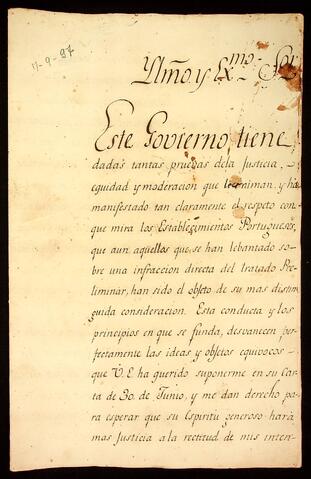 11-9-97
Yllño y Exmo. Sor
Este Govierno tiene
dadas tantas pruebas dela justicia,
equidad y moderacion que le animan, y ha
manifestado tan claramente el respeto con
que mira los Establecimientos Portugueses,
que aun aquellos que se han lebantado so-
bre una infraccion directa del tratado Pre-
liminar, han sido el objeto de su mas distin
guida consideracion. Esta conducta y los
principios en que se funda, desvanecen per-
fectamente las ideas y objetos equivocos -
que V.E. ha querido suponerme en su Car
ta de 30. de Junio, y me dan derecho pa
ra esperar que su Espiritu generoso hará
mas Justicia ala rectitud de mis inten-